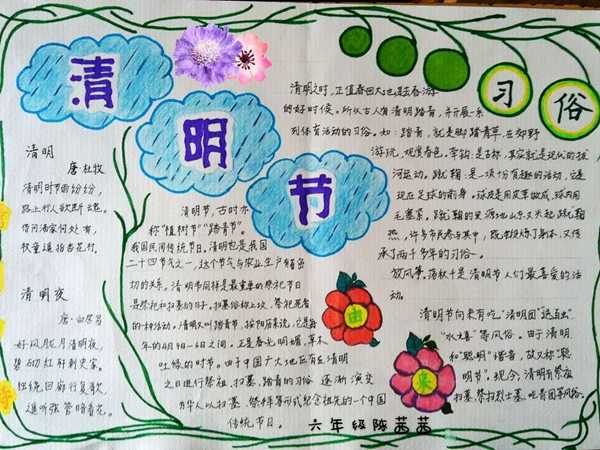 清明节
习俗
清明
唐·杜牧
清明时节雨纷纷,
路上行人欲断魂。
借问酒家何处有,
牧童遥指杏花村。
清明夜
唐·白居易
好风胧月清明夜,
碧砌红轩刺史家。
独绕回廊行复歇,
遥听弦管暗看花。
清明节,古时亦
称"植树节""踏青节"。
我国民间传统节日。清明也是我国
二十四节气之一,这个节气与农业生产有密
切的关系。清明节同样是最重要的祭祀节日
是祭祀和扫墓的日子。扫墓俗称上坟,祭祀死者
的一种活动。清明又叫踏青节,按阳历来说,它是每
年的4月4-6日之间,正是春光明媚,草木
吐绿的时节。由于中国广大地区有在清明
之日进行祭祖、扫墓、踏青的习俗 逐渐演变
为华人以扫墓、祭拜等形式纪念祖先的一个中国
传统节日。
由
来
清明之时,正值春回大地也是去春游
的好时候。所以古人有清明踏青,并开展一系
列体育活动的习俗。如:踏青,就是脚踏青草,在郊野
游玩,观赏春色。牵钩:是古称,其实就是现代的拔
河运动。蹴鞠:是一项有趣的活动,它是
现在足球的前身。球皮是用皮革做成,球内用
毛塞紧。
清明节向来有吃"清明团"
等风俗。由于清明
和"聪明"谐音,故又称"聪
明节"。现今,清明有祭祖
扫墓、祭扫烈士墓、吃青团等风俗。
六年级陈茜茜